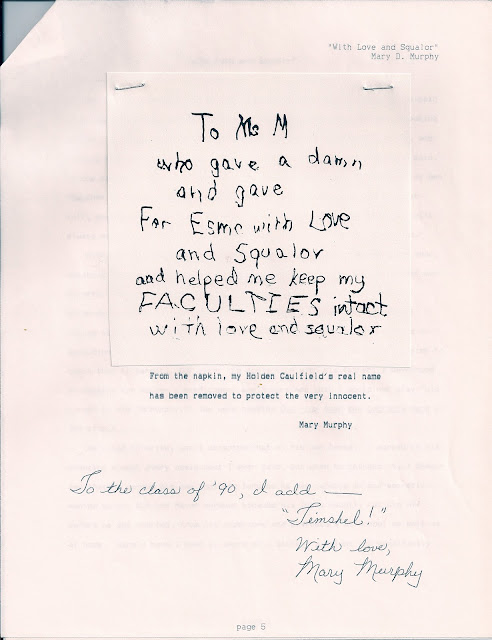 "With Love and Squalor"
Mary D. Murphy
To Ms M
who gave a damn
and gave
For Esme with Love
and Squalor
and helped me keep my
FACULTIES intact
with love and squalor
From the napkin, my Holden Caulfield's real name
has been removed to protect the very innocent.
Mary Murphy
To the class of '90, I add —
"Timshel!"
With love,
Mary Murphy
page 5